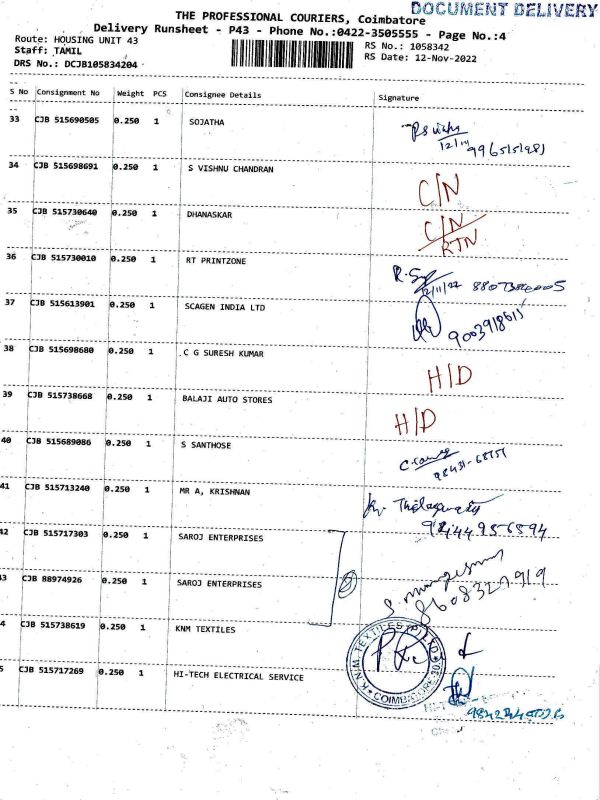 DOCUMENT DELIVERY
THE PROFESSIONAL COURIERS, Coimbatore
Delivery Runsheet - P43 - Phone No.:0422-3505555 - Page No.:4
Route: HOUSING UNIT 43
RS No.: 1058342
Staff: TAMIL
RS Date: 12-Nov-2022
DRS No.: DCJB105834204
S No Consignment No Weight PCS Consignee Details Signature
33 CJB 515690505 0.250 1 SOJATHA
12/11
34 CJB 515698691 0.250 1 S VISHNU CHANDRAN C/N
35 CJB 515730640 0.250 1 DHANASKAR C/N
RTN
36 CJB 515730010 0.250 1 RT PRINTZONE
12/11/22
37 CJB 515613901 0.250 1 SCAGEN INDIA LTD
38 CJB 515698680 0.250 1 C G SURESH KUMAR H/D
39 CJB 515738668 0.250 1 BALAJI AUTO STORES H/D
40 CJB 515689086 0.250 1 S SANTHOSE
41 CJB 515713240 0.250 1 MR A, KRISHNAN
42 CJB 515717303 0.250 1 SAROJ ENTERPRISES
43 CJB 88974926 0.250 1 SAROJ ENTERPRISES
8608327919
4 CJB 515738619 0.250 1 KNM TEXTILES
5 CJB 515717269 0.250 1 HI-TECH ELECTRICAL SERVICE